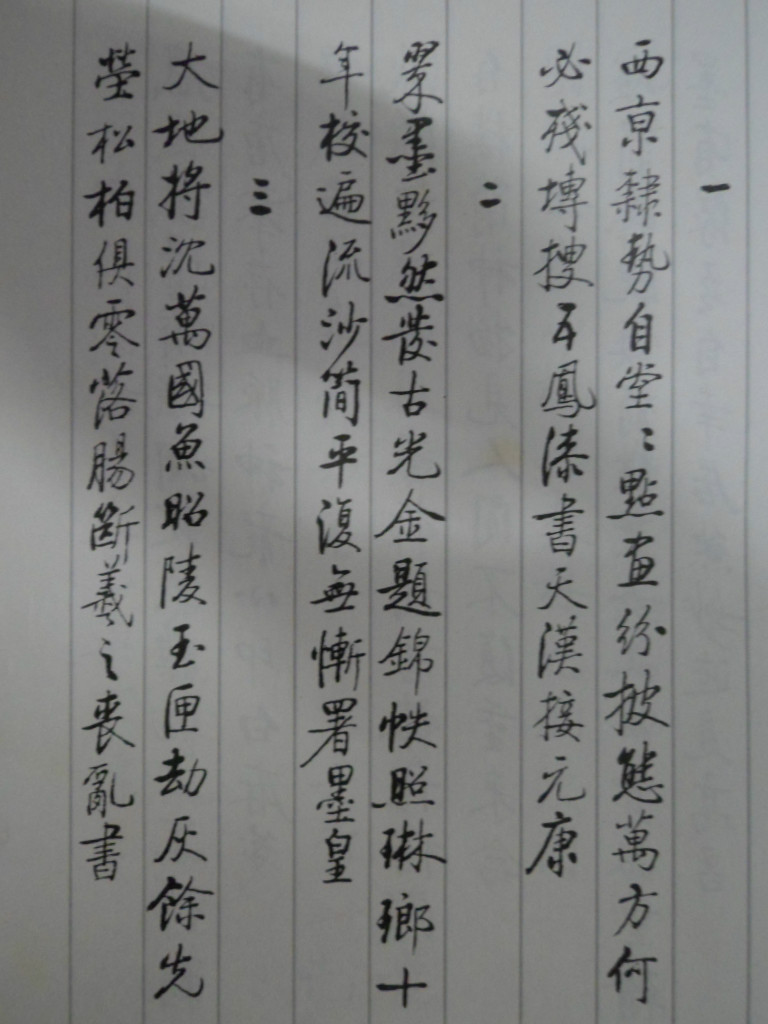 一
西京隸勢自堂〻點畫紛披態萬方何
必殘塼搜五鳳漆書天漢接元康
二
纍墨黟然發古光金題錦帙照琳瑯十
年校遍流沙簡平復無慚署墨皇
三
大地將沈萬國魚昭陵玉匣劫灰餘先
塋松柏俱零落腸斷羲之喪亂書